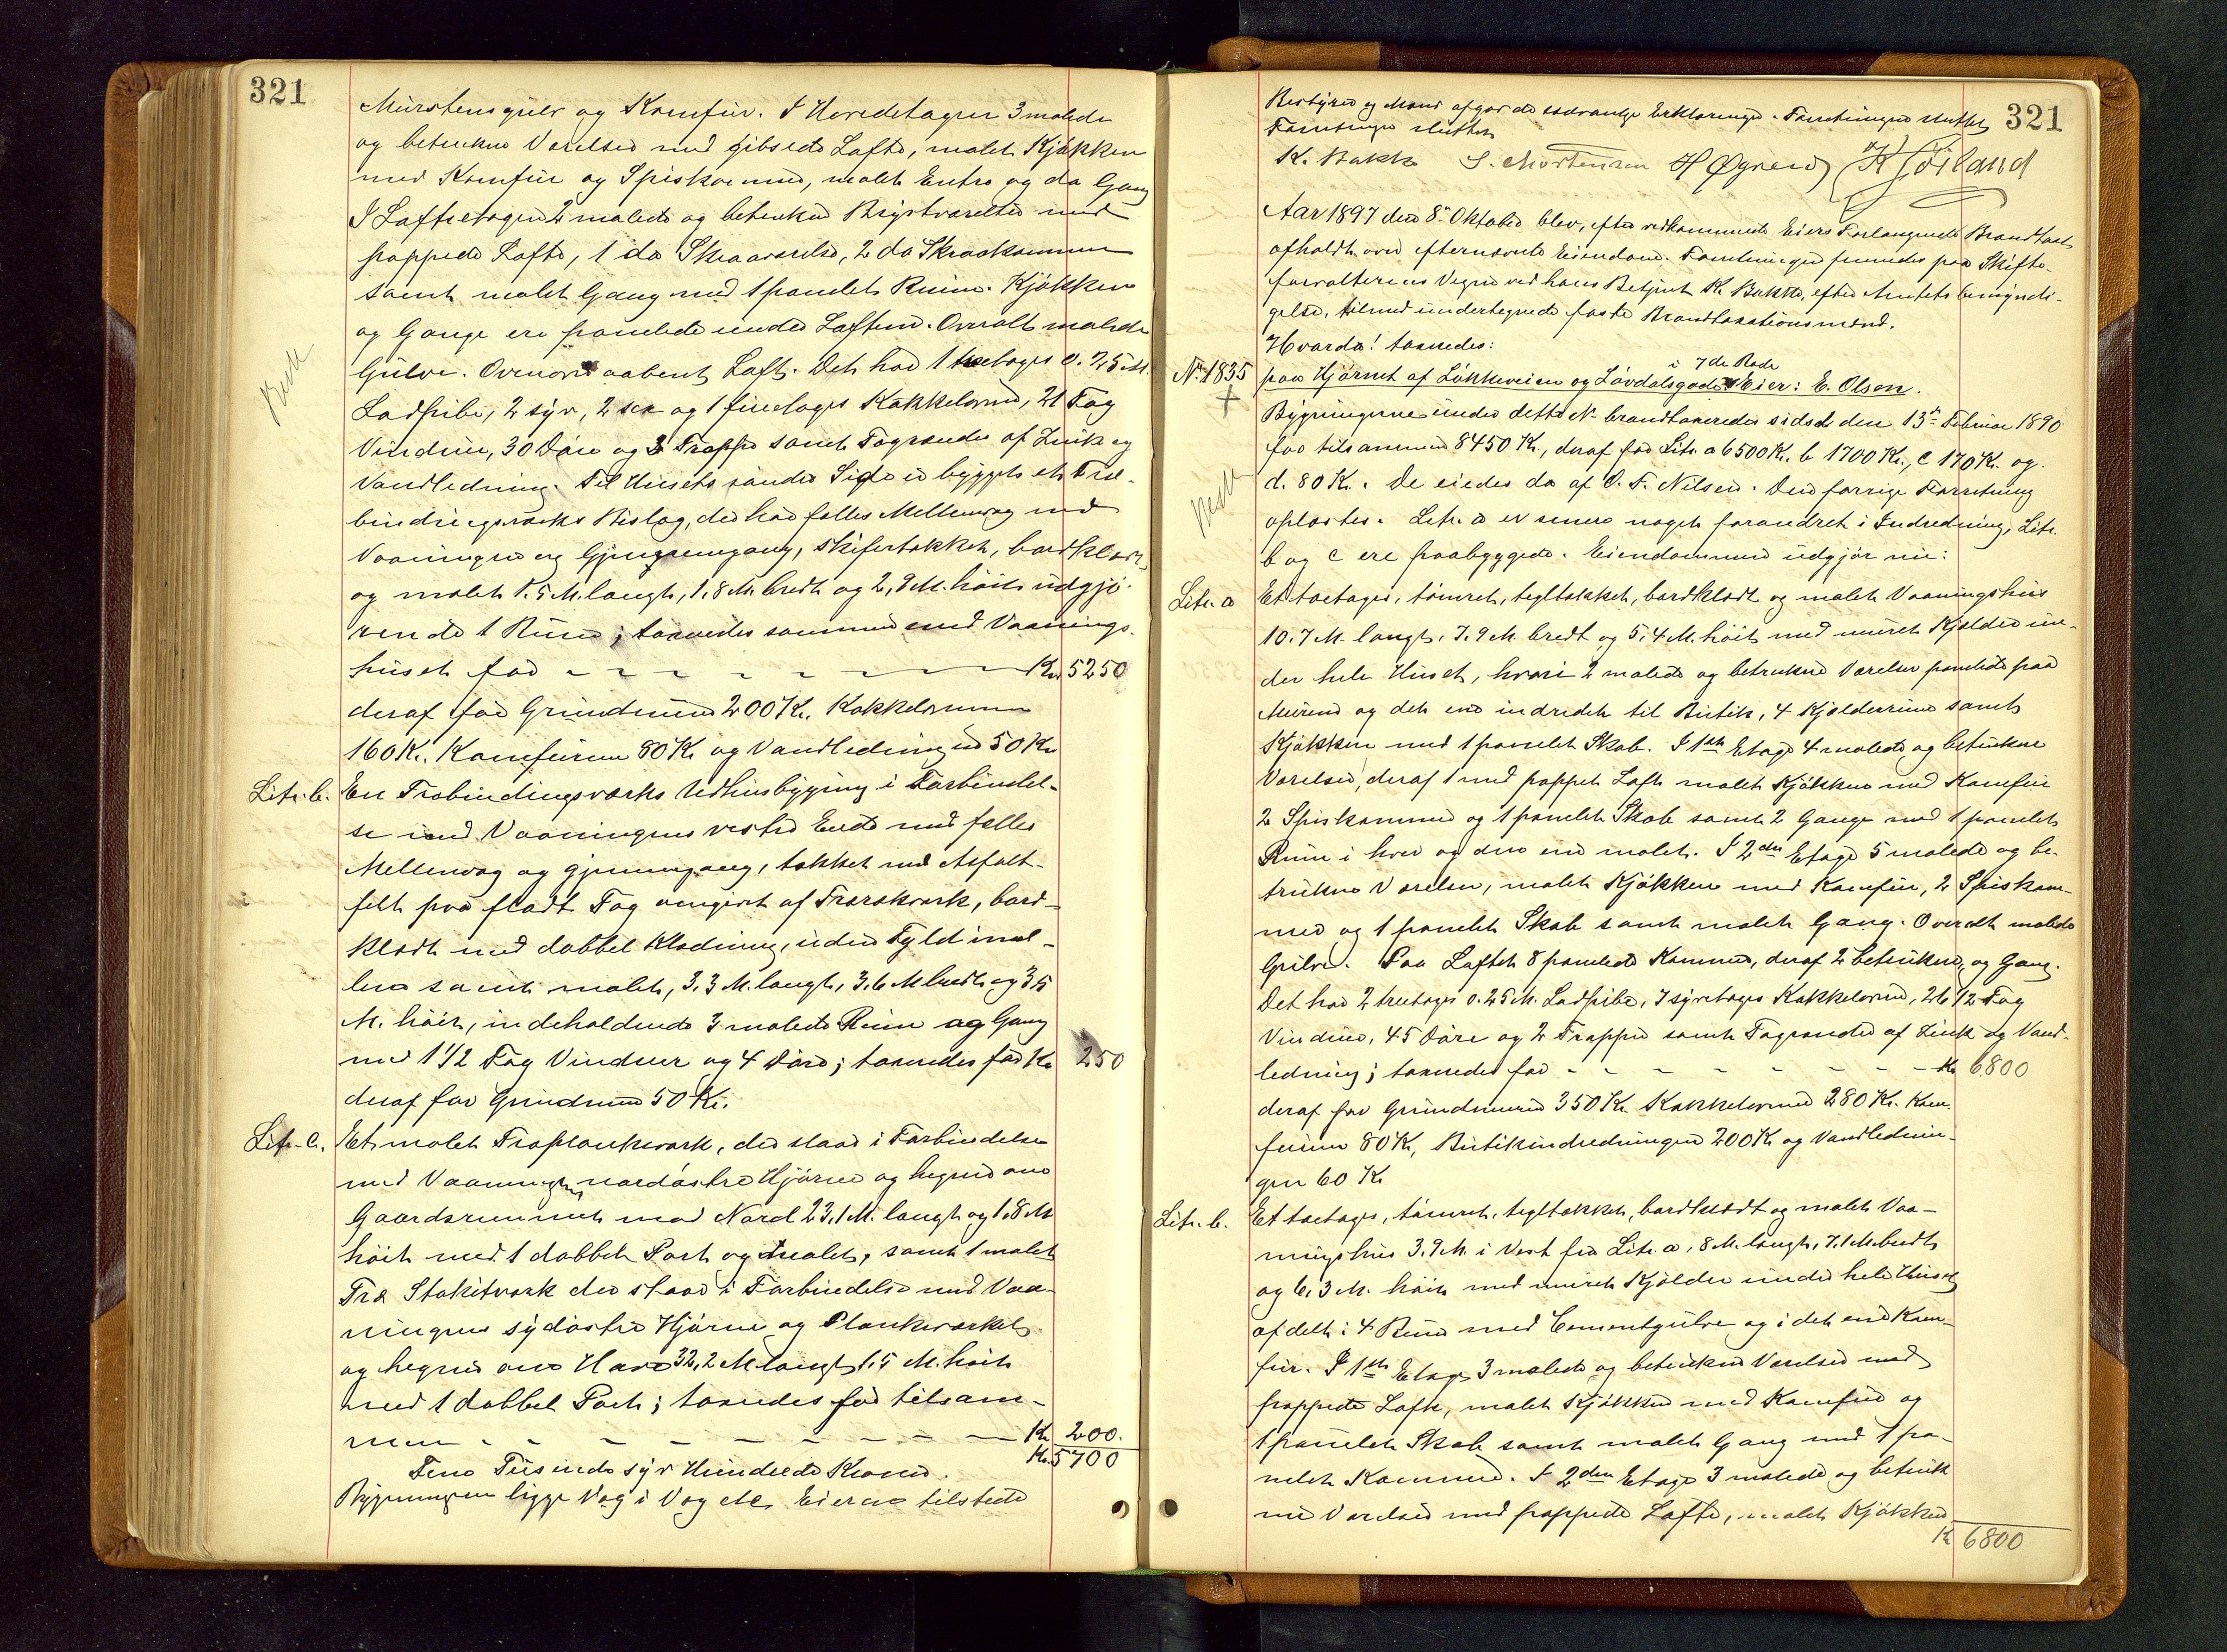 321
Murstensgulv og Komfur. I Hovedetagen 3 malede
og betrukne Værelser med gibsede Lofte, malet Kjøkken
med Komfur og Spiskammer, malet Entre og do Gang
I Loftsetagen 2 malede og betrukne Kvistværelser med
pappede Lofte, 1 do Skraaværelse, 2 do Skraakammer
samt malet Gang med 1 panelet Rum. Kjøkken
og Gange ere panelede under Loftene. Overalt malede
Gulve. Ovenover aabent Loft. Det har 1 treetages o. 25 M.
Ladpibe, 2 syv, 2 sex og 1 fireetages Kakkelovne, 21 Fag
Vinduer, 30 Døre og 3 Trapper samt Tagrender af Zink og
Vandledning. Til Husets søndre Side er bygget et Træ-
bindingsværks Bislag, der har fælles Mellemvæg med
Vaaningen og Gjennemgang, skifertækket, bordklædt
og malet 1.5 M. langt, 1,8 M. bredt og 2,9 M. høit udgjø-
rende 1 Rum; taxeredes sammen med Vaanings-
huset for - - - - - - Kr. 5250
deraf for Grundmuren 200 Kr. Kakkelovnene
160 Kr. Komfurene 80 Kr og Vandledningen 50 Kr
Litr. b. En Træbindingsværks Udhusbygning i Forbindel-
se med Vaaningens vestre Ende med fælles
Mellemvæg og gjennemgang, tækket med Asfalt-
filt paa fladt Tag omgivet af Træværk, bord-
klædt med dobbel Klædning, uden Fyld imel-
lem samt malet, 3,3 M. langt, 3,6 M bredt og 3,5
M. høit, indeholdende 3 malede Rum og Gang
med 1 1/2 Fag Vinduer og 4 Døre; taxeredes for Kr 250
deraf for Grundmuren 50 Kr.
Litr. c. Et malet Træplankeværk, der staar i Forbindelse
med Vaaningens nordøstre Hjørne og hegner om
Gaardsrummet mod Nord 23,1 M. langt og 1,8 M
høit med 1 dobbelt Port og malet, samt 1 malet
Træ Stakitværk der staar i Forbindelse med Vaa-
ningens sydøstre Hjørne og Plankeværket
og hegner om Have 32,2 M langt 1,5 M. høit
med 1 dobbel Port; taxeredes for tilsam-
men - - - - - - - Kr 200.
Kr. 5700
Fem Tusinde syv Hundrede Kroner.
Bygningerne ligge Væg i Væg etc. Eieren tilstede
321
Bestyrer og Mænd afgav de sædvanlige Erklæringer. Forretningen sluttet
Forretningen sluttet
K. Bakke S. Mortensen H Øgreid K Høiland
Aar 1897 den 8de Oktober blev, efter vedkommende Eiers Forlangende Brandtaxt
afholdt over efternævnte Eiendom. Forretningen fremmedes paa Skifte-
forvalterens Vegne ved hans Betjent K. Bakke, efter Amtets bemyndi-
gelse, tilmed undertegnede faste Brandtaxationsmænd.
Hvorda! taxeredes:
i 7de Rode
No 1835 paa Hjørnet af Løkkeveien og Løvdalsgade. Eier: E. Olsen.
Bygningerne under dette No brandtaxeredes sidst den 13de Februar 1890
for tilsammen 8450 Kr., deraf for Litr. a 6500 Kr. b 1700 Kr., c 170 Kr. og
d. 80 Kr. De eiedes da af O. T. Nilsen. Den forrige Forretning
oplæstes. Litr. a er senere noget forandret i Indredning, Litr.
b og c ere paabyggede. Eiendommen udgjør nu:
Litr. a Et toetages, tømret, tegltækket, bordklædt og malet Vaaningshus
10.7 M. langt, 7.9 M. bredt og 5,4 M. høit med muret Kjælder un-
der hele Huset, hvori 2 malede og betrukne Værelser panelede paa
Murene og det ene indredet til Butik, 4 Kjælderrum samt
Kjøkken med 1 panelet Skab. I 1ste Etage 4 malede og betrukne
Værelser, deraf 1 med pappet Loft malet Kjøkken med Komfur
2 Spiskammer og 1 panelet Skab samt 2 Gange med 1 panelet
Rum i hver og den ene malet. I 2den Etage 5 malede og be-
trukne Værelser, malet Kjøkken med Komfur, 2 Spiskam-
mer og 1 panelet Skab samt malet Gang. Overalt malede
Gulve. Paa Loftet 8 panelede Kammer, deraf 2 betrukne, og Gang.
Det har 2 treetages o. 25 M. Ladpibe, 7 syvetages Kakkelovne, 26 1/2 Fag
Vinduer, 45 Døre og 2 Trapper samt Tagrender af Zink og Vand-
ledning; taxeredes for - - - - - - - Kr 6800
deraf for Grundmuren 350 Kr. Kakkelovne 280 Kr. Kom-
furene 80 Kr, Butikindredningen 200 Kr og Vandlednin-
gen 60 Kr
Litr. b. Et toetages, tømret, tegltækket, bordklædt og malet Vaa-
ningshus 3.9 M. i Vest fra Litr. a, 8 M. langt, 7,1 M. bredt
og 6,3 M. høit med muret Kjælder under hele Huset
afdelt i 4 Rum med Cementgulve og i det ene Kom-
fur. I 1ste Etage 3 malede og betrukne Værelser med
pappede Lofte, malet Kjøkken med Komfur og
1 panelet Skab samt malet Gang med 1 pa-
nelet Kammer. I 2den Etage 3 malede og betruk
ne Værelser med pappede Lofte, malet Kjøkken
Kr 6800